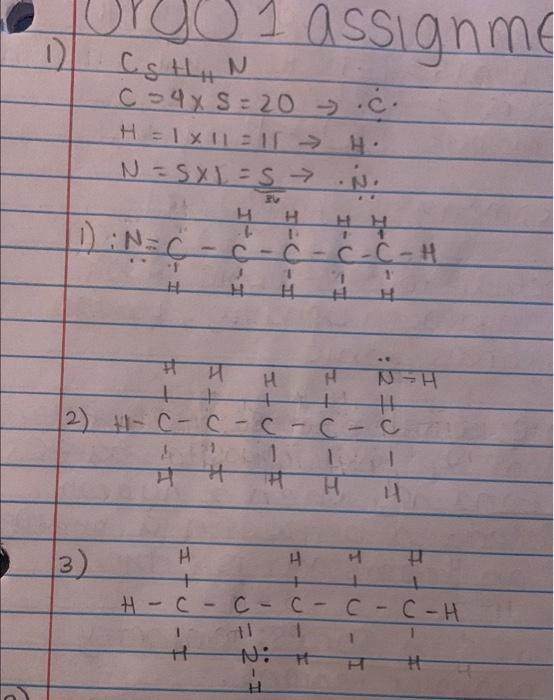 Orgo 1 assignme
1) C5H11N
C = 4 x 5 = 20 → ·C·
H = 1 x 11 = 11 → H·
N = 5 x 1 = 5 → ·N·
36
H H H H
1) :N = C - C - C - C - C - H
H H H H H
H H H H N - H
2) H - C - C - C - C - C
H H H H H
3) H H H H
H - C - C - C - C - C - H
H N: H H H
H